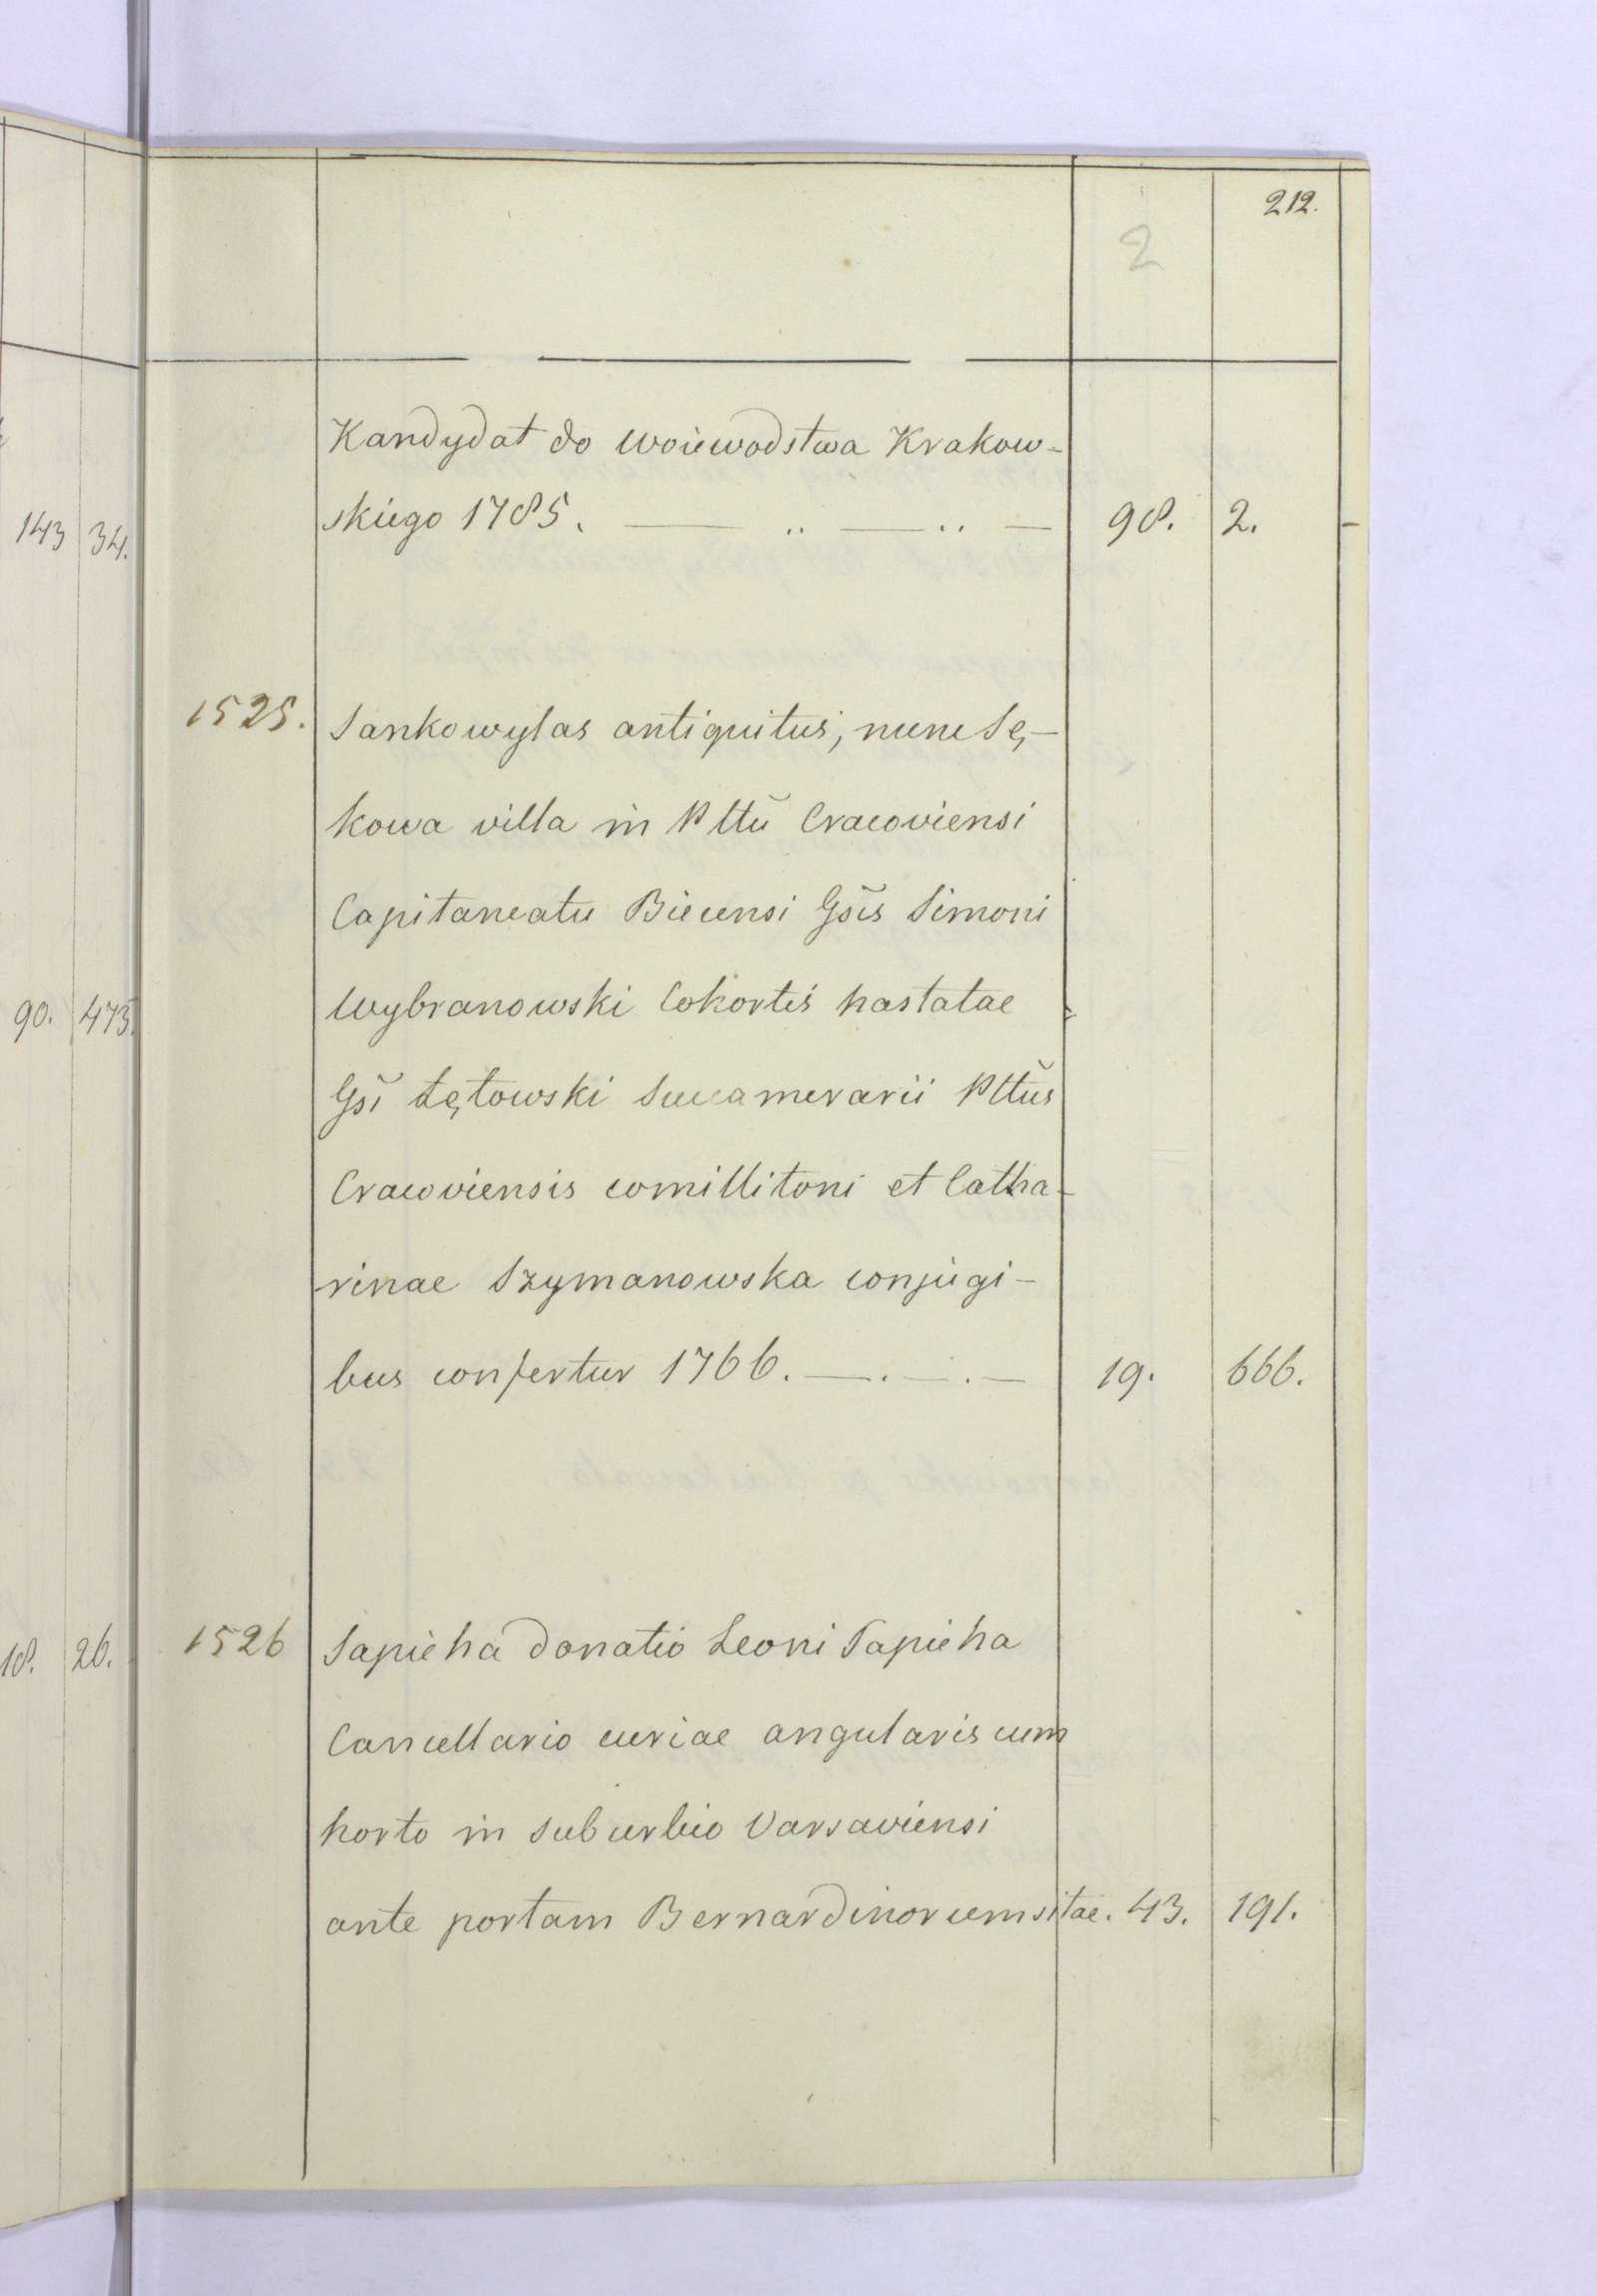 212.
2
Kandydat do woiewodstwa Krakow-
skiego 1785. 98. 2.
1525. Sankowylas antiquitus, nunc Sę-
kowa villa in Pttū Cracoviensi
Capitaneatu Biecensi Gsīs Simoni
Wybranowski Cohortis hastatae
Gsī Łętowski Succamerarii Pttūs
Cracoviensis comillitoni et Catha-
rinae Szymanowska conjugi-
bus confertur 1766. 19. 666.
1526 Sapieha donatio Leoni Sapieha
Cancellario curiae angularis cum
horto in suburbio Varsaviensi
ante portam Bernardinorum sitae. 43. 191.
143 34.
90. 473.
18. 26.